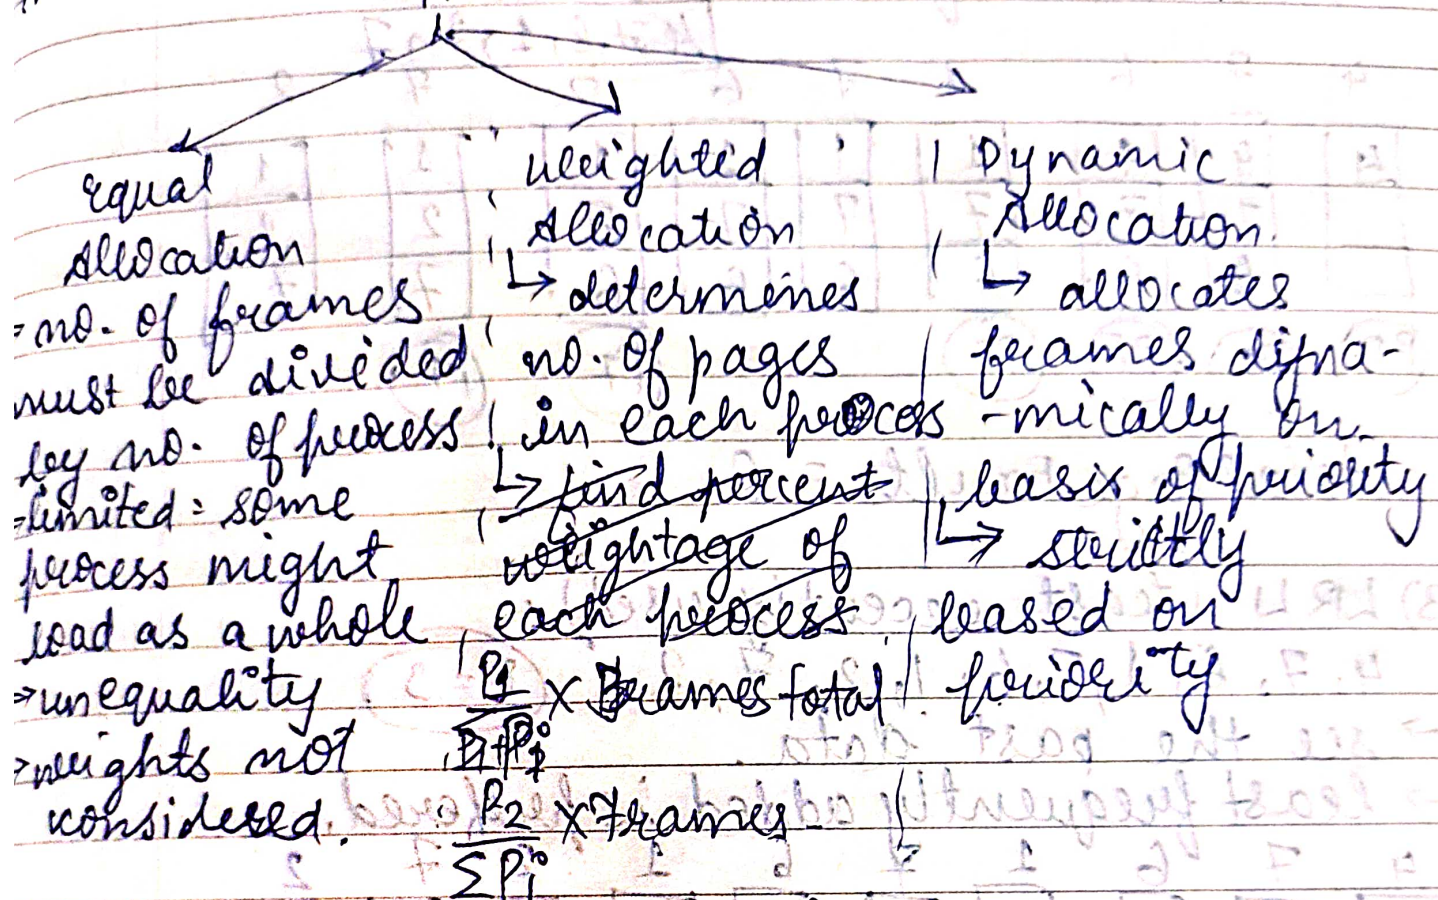 Equal
Allocation
- no. of frames
must be divided
by no. of process
- limited : some
process might
load as a whole
→ unequality
→ weights not
considered.
Weighted
Allocation
↳ determines
no. of pages
in each process
↳ find percent
weightage of
each process
P1 × Frames total
ΣPi
P2 × Frames
ΣPi
Dynamic
Allocation.
↳ allocates
frames dyna-
-mically on
basis of priority
↳ strictly
based on
priority